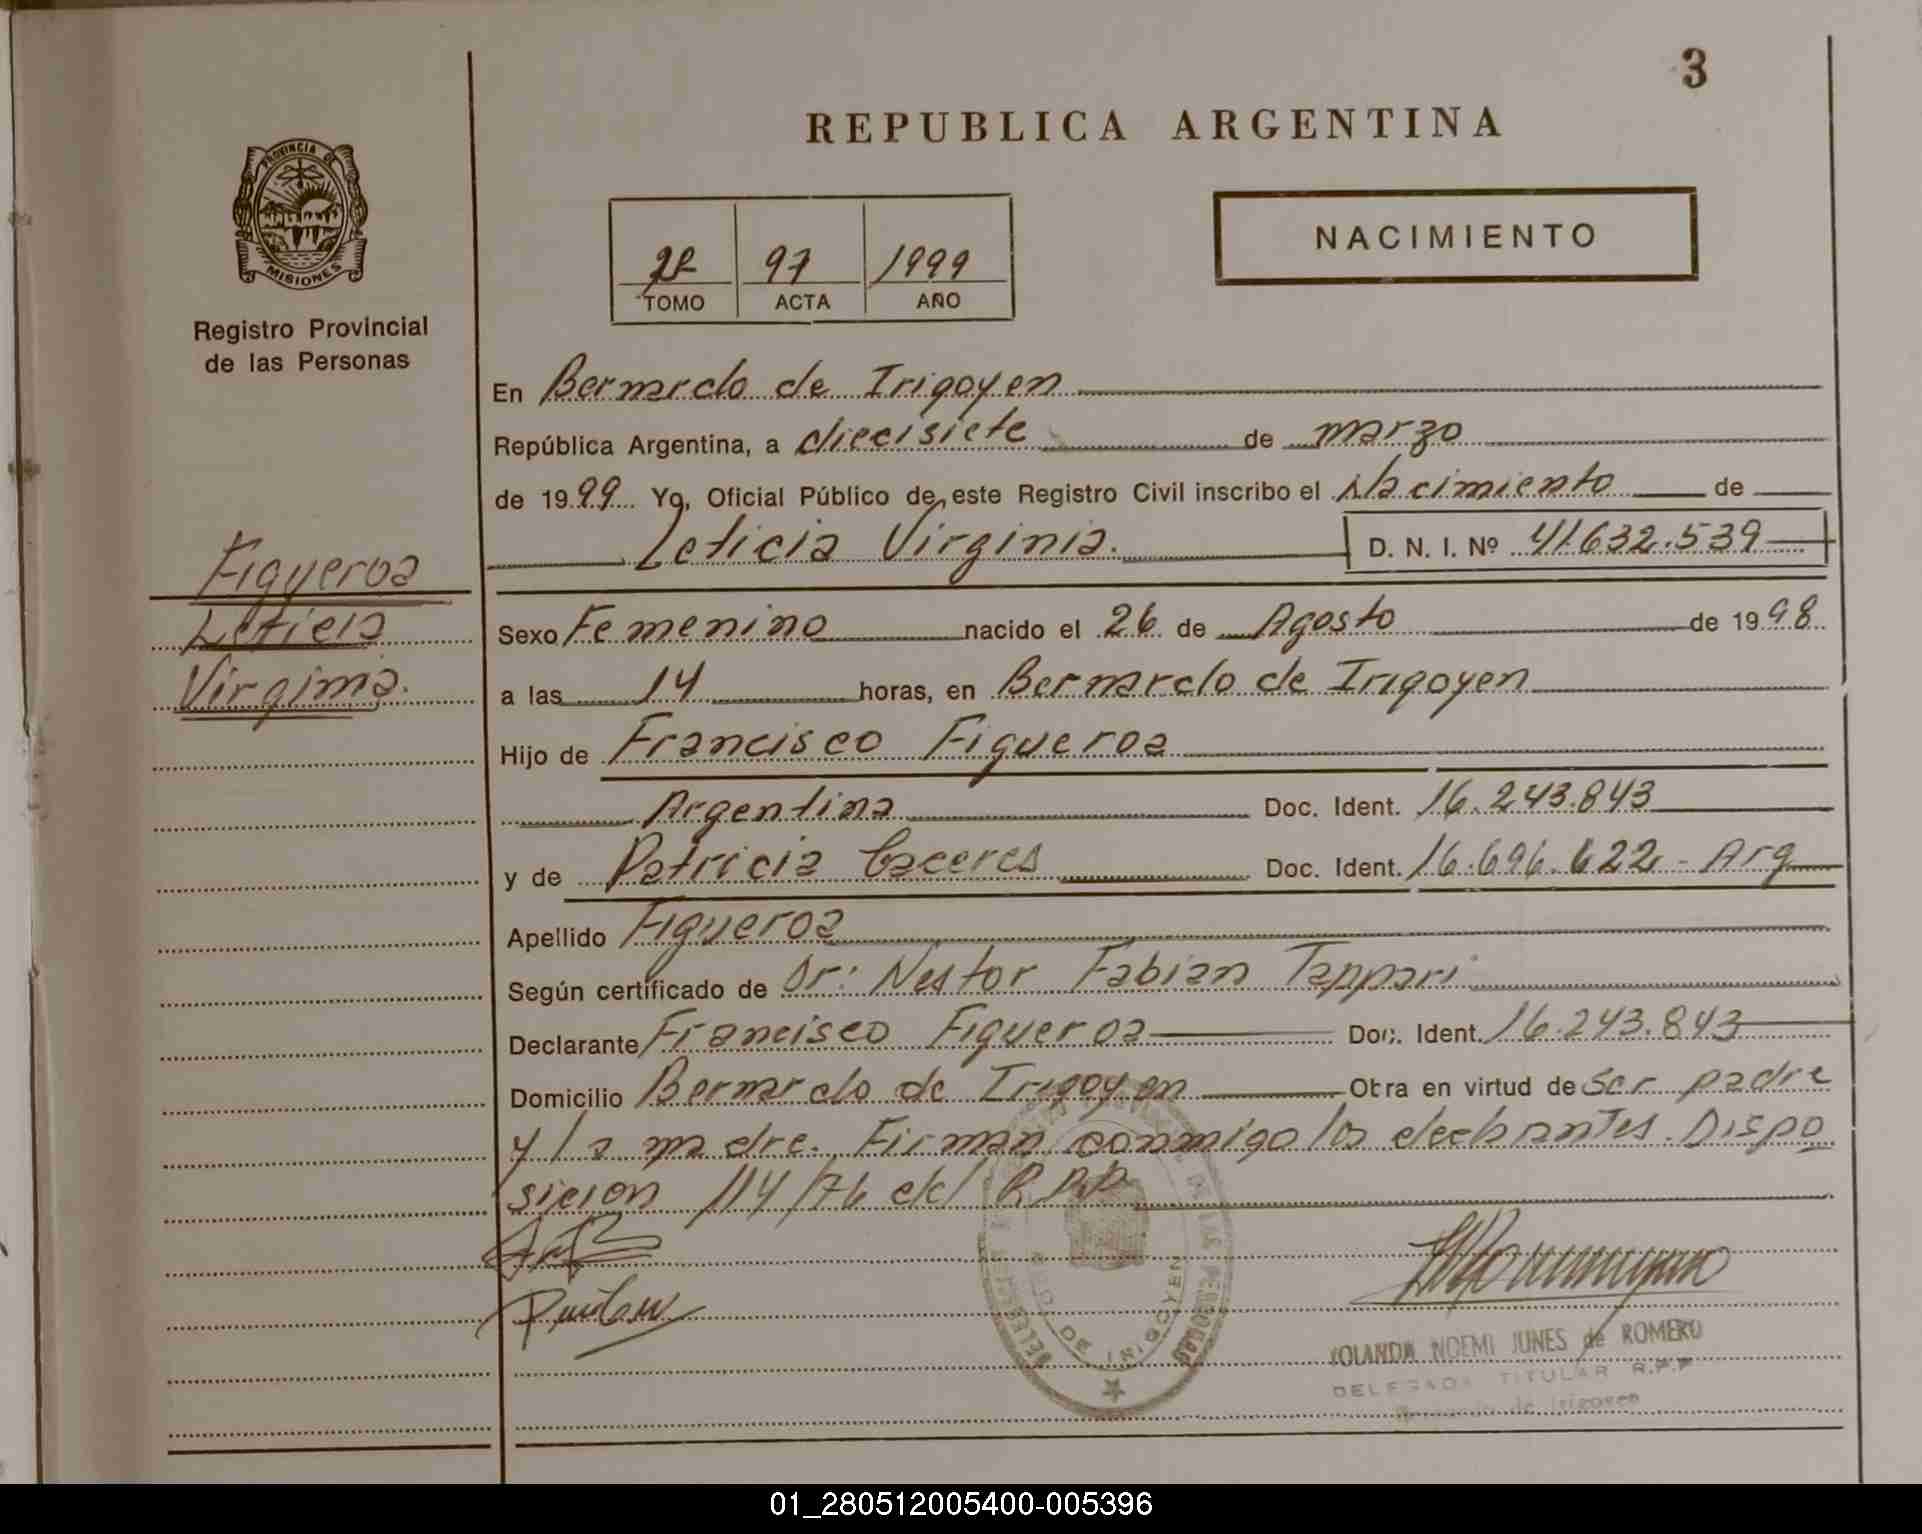 3
REPUBLICA ARGENTINA
PROVINCIA DE
MISIONES
Registro Provincial
de las Personas
97 1999
TOMO ACTA AÑO
NACIMIENTO
En Bernardo de Irigoyen
República Argentina, a diecisiete de marzo
de 1999 Yo, Oficial Público de este Registro Civil inscribo el Nacimiento de
Leticia Virginia. D. N. I. Nº 41.632.539
Figueroa
Leticia
Virginia.
Sexo Femenino nacido el 26 de Agosto de 1998
a las 14 horas, en Bernardo de Irigoyen
Hijo de Francisco Figueroa
Argentina Doc. Ident. 16.243.843
y de Patricia Caceres Doc. Ident. 16.696.622 - Arg
Apellido Figueroa
Según certificado de Dr: Nestor Fabian Tappari
Declarante Francisco Figueroa Doc. Ident. 16.243.843
Domicilio Bernardo de Irigoyen Obra en virtud de ser padre
y la madre. Firman conmigo los declarantes. Dispo
sicion 114/76 del R.P.P.
DE LAS PERSONAS
DE IRIGOYEN
YOLANDA NOEMI JUNES de ROMERO
DELEGADA TITULAR R.P.P
Bernardo de Irigoyen
01_280512005400-005396